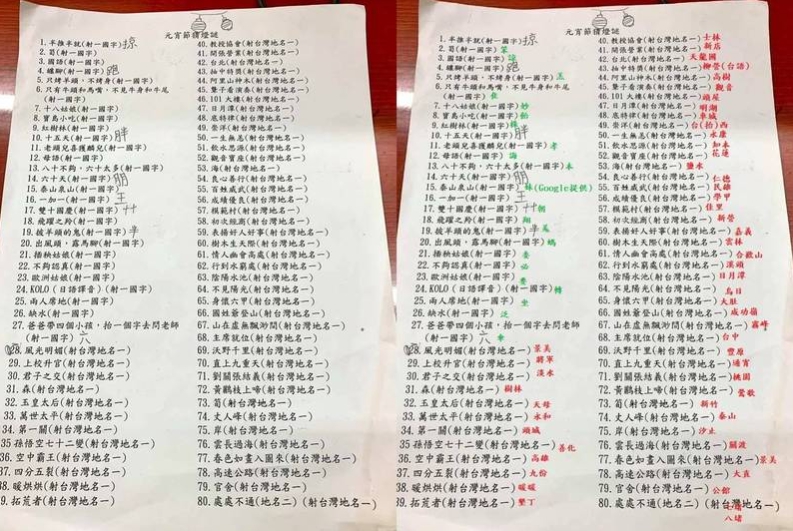 元宵節猜燈謎
1. 半推半就(射一國字)掠
2. 筍(射一國字)
3. 國語(射一國字)
4. 螺腳(射一國字)跑
5. 只烤羊頭,不烤身(射一國字)
6. 只有牛頭和馬嘴,不見牛身和牛尾
(射一國字)
7. 十八姑娘(射一國字)
8. 寶島小吃(射一國字)
9. 紅樹林(射一國字)
10. 十五天(射一國字)胖
11. 老頭兒喜獲麟兒(射一國字)
12. 母語(射一國字)
13. 八十不夠,六十太多(射一國字)
14. 六十天(射一國字)朋
15. 泰山泉山(射一國字)
16. 一加一(射一國字)王
17. 雙十國慶(射一國字)艹
18. 飛躍之羚(射一國字)
19. 披羊頭的鬼(射一國字)
20. 出風頭,露馬腳(射一國字)
21. 插秧姑娘(射一國字)
22. 不夠認真(射一國字)
23. 歐洲姑娘(射一國字)
24. KOLO(日語譯音)(射一國字)
25. 兩人席地(射一國字)
26. 缺水(射一國字)
27. 爸爸帶四個小孩,抬一個字去問老師
(射一國字)六
28. 風光明媚(射台灣地名一)
29. 上校升官(射台灣地名一)
30. 君子之交(射台灣地名一)
31. 森(射台灣地名一)
32. 玉皇太后(射台灣地名一)
33. 萬世太平(射台灣地名一)
34. 第一關(射台灣地名一)
35 孫悟空七十二變(射台灣地名一)
36. 空中霸王(射台灣地名一)
37. 四分五裂(射台灣地名一)
38. 暖烘烘(射台灣地名一)
39. 拓荒者(射台灣地名一)
40. 教授協會(射台灣地名一)
41. 開張營業(射台灣地名一)
42. 台北(射台灣地名一)
43. 抽中特獎(射台灣地名一)
44. 阿里山神木(射台灣地名一)
45. 聾子看演奏(射台灣地名一)
46. 101大樓(射台灣地名一)
47. 日月潭(射台灣地名一)
48. 底特律(射台灣地名一)
49. 營洋(射台灣地名一)
50. 一生無恙(射台灣地名一)
51. 飲水思源(射台灣地名一)
52. 觀音寶座(射台灣地名一)
53. 海(射台灣地名一)
54. 良心善行(射台灣地名一)
55. 百姓威武(射台灣地名一)
56. 成績優良(射台灣地名一)
57. 模範村(射台灣地名一)
58. 初次經商(射台灣地名一)
59. 表揚好人好事(射台灣地名一)
60. 樹木生天際(射台灣地名一)
61. 情人幽會高處(射台灣地名一)
62. 行到水窮處(射台灣地名一)
63. 陰陽水池(射台灣地名一)
64. 不見陽光(射台灣地名一)
65. 身懷六甲(射台灣地名一)
66. 國姓爺登山(射台灣地名一)
67. 山在虛無飄渺間(射台灣地名一)
68. 主席就位(射台灣地名一)
69. 沃野千里(射台灣地名一)
70. 直上九重天(射台灣地名一)
71. 劉關張結義(射台灣地名一)
72. 黃鸝枝上啼(射台灣地名一)
73. 筍(射台灣地名一)
74. 丈人峰(射台灣地名一)
75. 岸(射台灣地名一)
76. 雲長過海(射台灣地名一)
77. 春色如畫入圖來(射台灣地名一)
78. 高速公路(射台灣地名一)
79. 官舍(射台灣地名一)
80. 處處不通(地名二)(射台灣地名一)
元宵節猜燈謎
1. 半推半就(射一國字)掠
2. 筍(射一國字)笨
3. 國語(射一國字)
4. 螺腳(射一國字)跑
5. 只烤羊頭,不烤身(射一國字)
6. 只有牛頭和馬嘴,不見牛身和牛尾
(射一國字)
7. 十八姑娘(射一國字)妙
8. 寶島小吃(射一國字)飴
9. 紅樹林(射一國字)
10. 十五天(射一國字)胖
11. 老頭兒喜獲麟兒(射一國字)孝
12. 母語(射一國字)誨
13. 八十不夠,六十太多(射一國字)本
14. 六十天(射一國字)朋
15. 泰山泉山(射一國字)(Google提供)
16. 一加一(射一國字)王
17. 雙十國慶(射一國字)艹
18. 飛躍之羚(射一國字)翔
19. 披羊頭的鬼(射一國字)
20. 出風頭,露馬腳(射一國字)
21. 插秧姑娘(射一國字)委
22. 不夠認真(射一國字)
23. 歐洲姑娘(射一國字)要
24. KOLO(日語譯音)(射一國字)
25. 兩人席地(射一國字)坐
26. 缺水(射一國字)泛
27. 爸爸帶四個小孩,抬一個字去問老師
(射一國字)六 傘
28. 風光明媚(射台灣地名一)景美
29. 上校升官(射台灣地名一)將軍
30. 君子之交(射台灣地名一)淡水
31. 森(射台灣地名一)樹林
32. 玉皇太后(射台灣地名一)天母
33. 萬世太平(射台灣地名一)永和
34. 第一關(射台灣地名一)頭城
35 孫悟空七十二變(射台灣地名一)善化
36. 空中霸王(射台灣地名一)高雄
37. 四分五裂(射台灣地名一)九份
38. 暖烘烘(射台灣地名一)暖暖
39. 拓荒者(射台灣地名一)墾丁
40. 教授協會(射台灣地名一)士林
41. 開張營業(射台灣地名一)新店
42. 台北(射台灣地名一)天龍國
43. 抽中特獎(射台灣地名一)柳營(台語)
44. 阿里山神木(射台灣地名一)高樹
45. 聾子看演奏(射台灣地名一)觀音
46. 101大樓(射台灣地名一)頭屋
47. 日月潭(射台灣地名一)明湖
48. 底特律(射台灣地名一)車城
49. 營洋(射台灣地名一)台(抬)西
50. 一生無恙(射台灣地名一)永康
51. 飲水思源(射台灣地名一)知本
52. 觀音寶座(射台灣地名一)花蓮
53. 海(射台灣地名一)鹽水
54. 良心善行(射台灣地名一)仁德
55. 百姓威武(射台灣地名一)民雄
56. 成績優良(射台灣地名一)學甲
57. 模範村(射台灣地名一)佳里
58. 初次經商(射台灣地名一)新營
59. 表揚好人好事(射台灣地名一)嘉義
60. 樹木生天際(射台灣地名一)雲林
61. 情人幽會高處(射台灣地名一)合歡山
62. 行到水窮處(射台灣地名一)溪頭
63. 陰陽水池(射台灣地名一)日月潭
64. 不見陽光(射台灣地名一)烏日
65. 身懷六甲(射台灣地名一)大肚
66. 國姓爺登山(射台灣地名一)成功嶺
67. 山在虛無飄渺間(射台灣地名一)霧峰
68. 主席就位(射台灣地名一)台中
69. 沃野千里(射台灣地名一)豐原
70. 直上九重天(射台灣地名一)通霄
71. 劉關張結義(射台灣地名一)桃園
72. 黃鸝枝上啼(射台灣地名一)鶯歌
73. 筍(射台灣地名一)新竹
74. 丈人峰(射台灣地名一)泰山
75. 岸(射台灣地名一)汐止
76. 雲長過海(射台灣地名一)關渡
77. 春色如畫入圖來(射台灣地名一)景美
78. 高速公路(射台灣地名一)大直
79. 官舍(射台灣地名一)公館
80. 處處不通(地名二)(射台灣地名一)
八堵